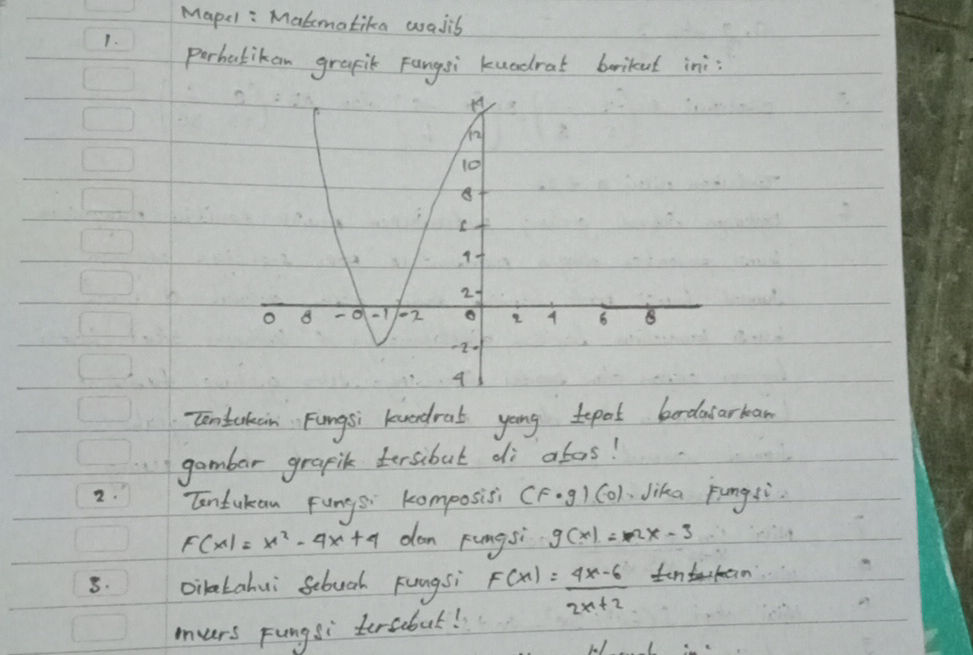 Mapel : Matematika wajib
1.
Perhatikan grafik Fungsi kuadrat berikut ini :
14
12
10
8
6
4
2
0 8 -0 -1 -2 0 2 4 6 8
-2
4
Tentukan Fungsi kuadrat yang tepat berdasarkan
gambar grafik tersebut di atas !
2. Tentukan Fungsi komposisi (F∘g)(0). Jika Fungsi
F(x) = x² - 4x + 4 dan Fungsi g(x) = 2x - 3
3. Diketahui sebuah Fungsi F(x) = 4x-6 / 2x+2 tentukan
invers Fungsi tersebut !